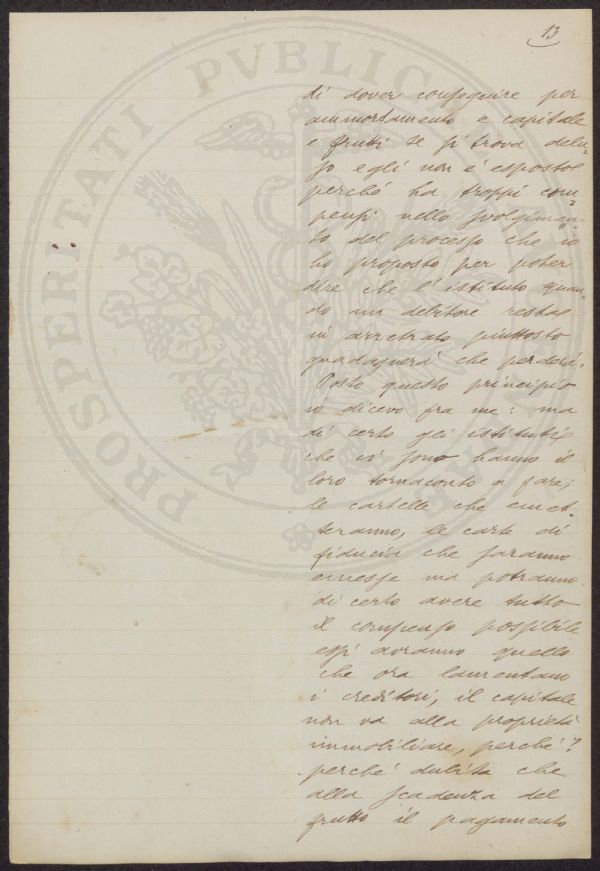 13
di dover conseguire per
ammortamento e capitale
e frutti se si trova delu-
so egli non è esposto
perché ha troppi com
pensi nello svolgimen-
to del processo che io
ho proposto per poter
dire che l'istituto quan-
do un debitore resta
in arretrato piuttosto
guadagnerà che perderà.
Posto questo principio
io dicevo fra me: ma
di certo gli istituti
che vi sono hanno il
loro tornaconto a fare;
le cartelle che emet.
teranno, le carte di
fiducia che saranno
emesse ma potranno
di certo avere tutto
il compenso possibile
essi avranno quello
che ora lamentano
i creditori, il capitale
non va alla proprietà
immobiliare, perché?
perché dubita che
alla scadenza del
frutto il pagamento
PROSPERITATI PVBLICAE